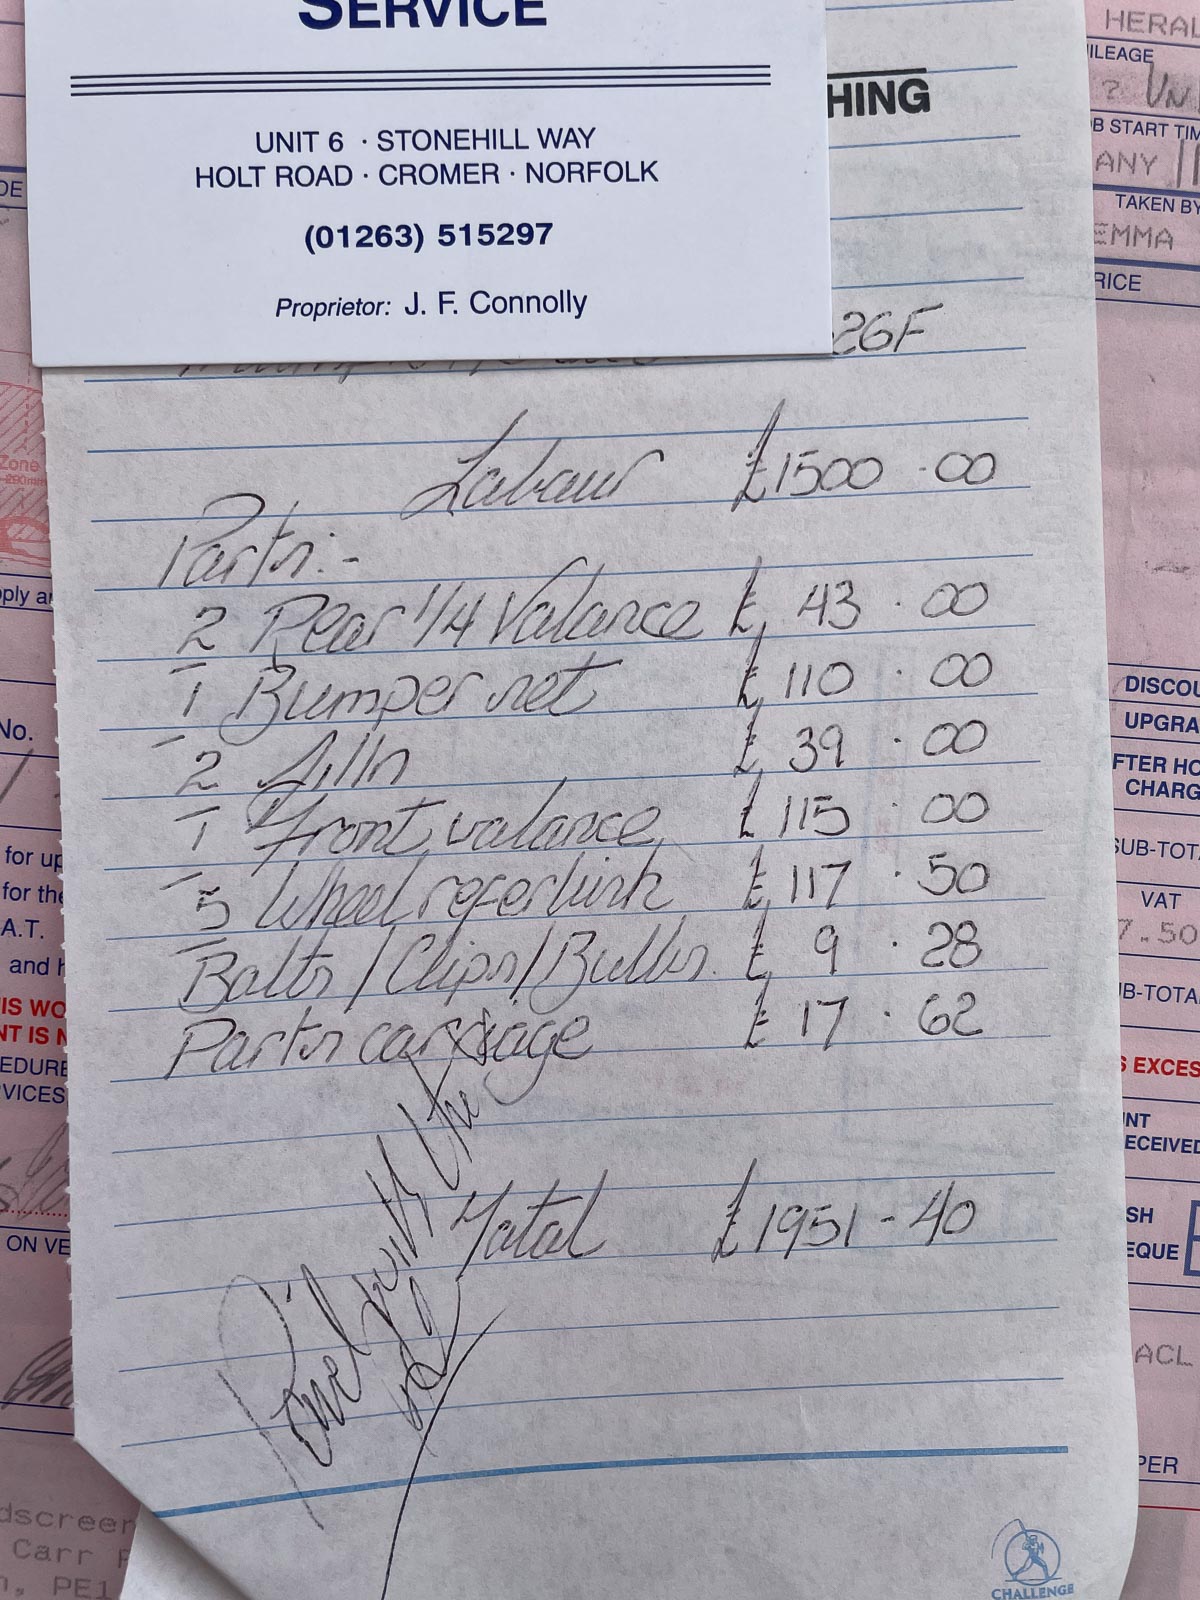 SERVICE
UNIT 6 · STONEHILL WAY
HOLT ROAD · CROMER · NORFOLK
(01263) 515297
Proprietor: J. F. Connolly
HING
26F
Labour £1500 .00
Parts:-
2 Rear 1/4 Valance £ 43 . 00
1 Bumper set £ 110 . 00
2 Sills £ 39 . 00
1 Front valance £ 115 . 00
5 Wheel referbish £ 117 . 50
Bolts / Clips / Bulbs. £ 9 . 28
Parts carriage £ 17 . 62
Total £1951 - 40
Paid with the
CHALLENGE
HERAL
ILEAGE
? UN
B START TIM
ANY
TAKEN BY
EMMA
RICE
DISCOU
UPGRA
FTER HO
CHARG
SUB-TOTA
VAT
7.50
UB-TOTA
S EXCES
NT
ECEIVED
SH
EQUE
ACL
PER
DE
Zone
290mm
pply a
No.
for up
for the
A.T.
and h
IS WO
NT IS N
EDURE
VICES
ON VE
dscreen
Carr
PE1